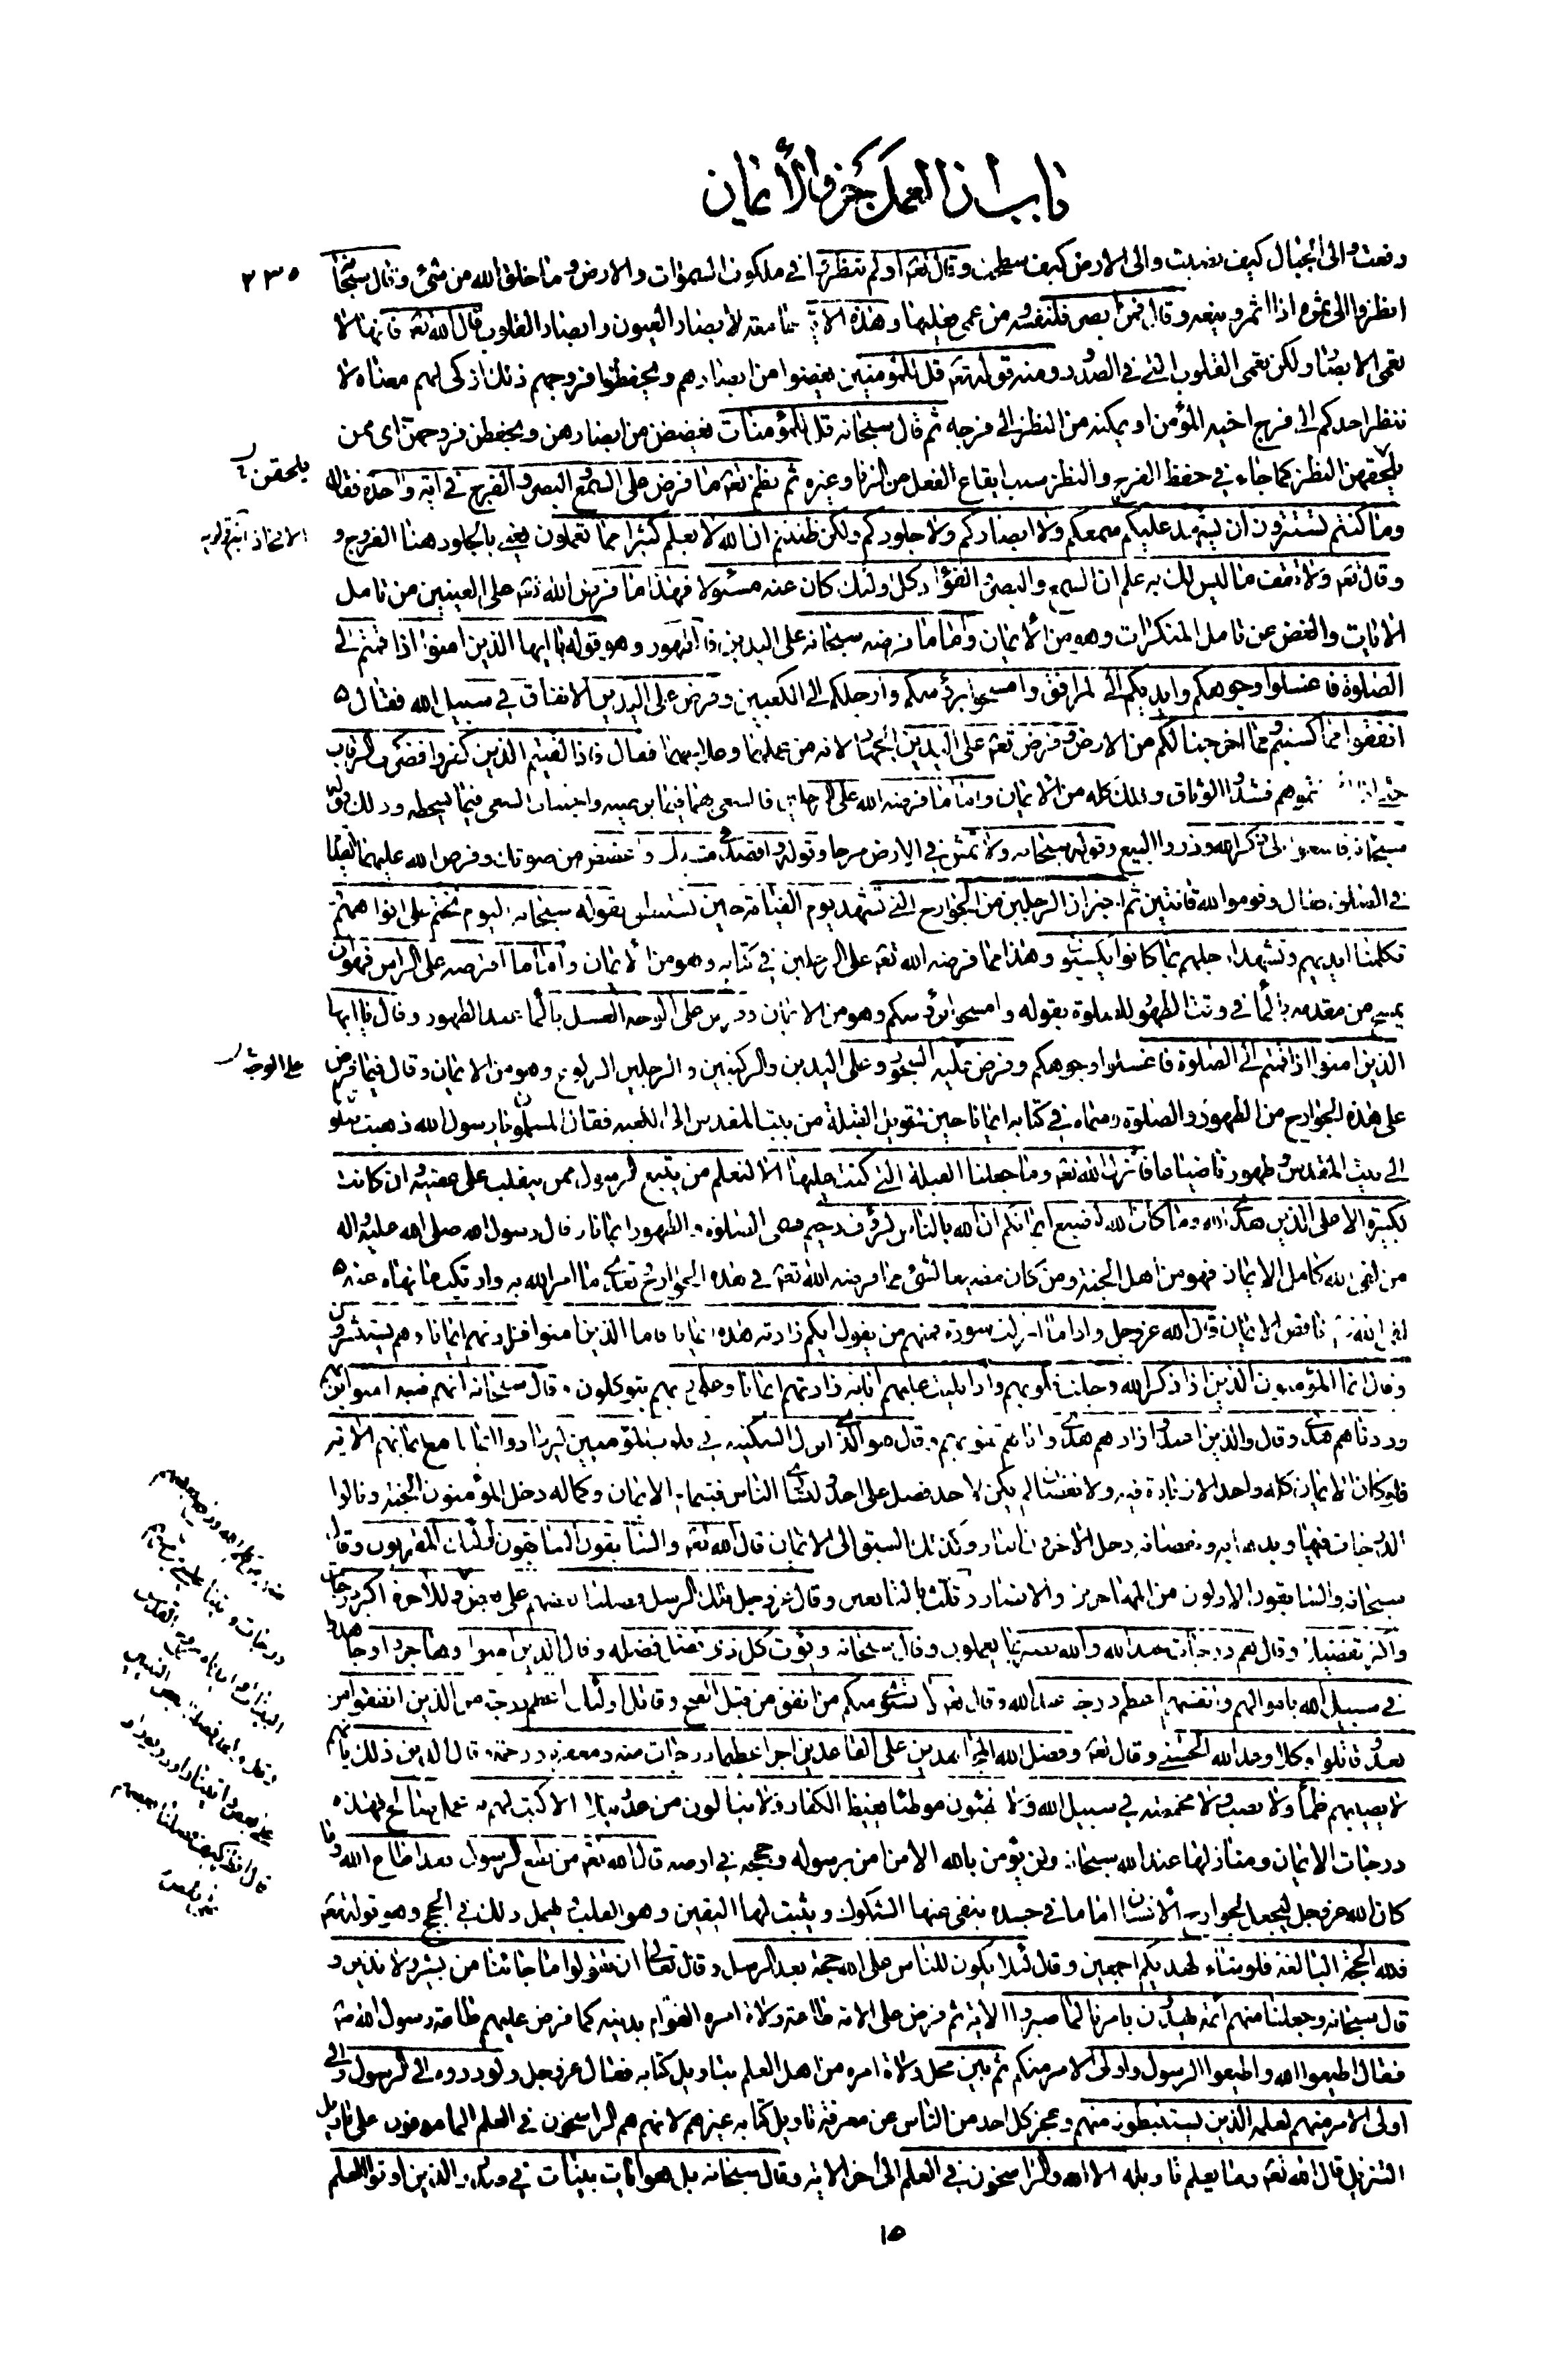 باب ان العمل جزء الأيمان
رفعت والى الجبال كيف نصبت والى الارض كيف سطحت وقال تعه اولم ينظروا في ملكوت السموات والارض وما خلق الله من شئ وقال سبحانه
٢٣٥
انظروا الى ثمره اذا اثمر وينعه وقال فمن ابصر فلنفسه ومن عمى فعليها وهذه الاية جامعه لابصار العيون وابصار القلوب قال الله تعه فانها لا
تعمى الابصار ولكن تعمى القلوب التي في الصدور ومنه قوله تعه قل للمؤمنين يغضوا من ابصارهم ويحفظوا فروجهم ذلك ازكى لهم معناه لا
ينظر احدكم الى فرج اخيه المؤمن او يمكنه من النظر الى فرجه ثم قال سبحانه قل للمؤمنات يغضضن من ابصارهن ويحفظن فروجهن اى ممن
يلحقهن النظر كما جاء في حفظ الفرج والنظر سبب ايقاع الفعل من الزنا وغيره ثم نظم تعه ما فرض على السمع والبصر والفرج في اية واحدة فقال
يلحقن
وما كنتم تستترون ان يشهد عليكم سمعكم ولا ابصاركم ولا جلودكم ولكن ظننتم ان الله لا يعلم كثيرا مما تعملون يعني بالجلود هنا الفروج و
وقال تعه ولا تقف ما ليس لك به علم ان السمع والبصر والفؤاد كل اولئك كان عنه مسئولا فهذا ما فرض الله تعه على العينين من تامل
الايات والغض عن تامل المنكرات وهو من الأيمان واما ما فرضه سبحانه على اليدين فالطهور وهو قوله يا ايها الذين امنوا اذا قمتم الى
الصلوة فاغسلوا وجوهكم وايديكم الى المرافق وامسحوا برؤسكم وارجلكم الى الكعبين وفرض على اليدين الانفاق في سبيل الله فقال
انفقوا مما كسبتم ومما اخرجنا لكم من الارض وفرض تعه على اليدين الجهاد لانه من عملهما وعلاجهما فقال فاذا لقيتم الذين كفروا فضرب الرقاب
حتى اذا اثخنتموهم فشدوا الوثاق وذلك كله من الأيمان واما ما فرضه الله على الرجلين فالسعى بهما فيما يرضيه واجتناب السعى فيما يسخطه وذلك قوله
سبحانه فاسعوا الى ذكر الله وذروا البيع وقوله سبحانه ولا تمش في الارض مرحا وقوله واقصد في مشيك واغضض من صوتك وفرض الله عليهما القيام
في الصلوة فقال وقوموا لله قانتين ثم اخبر ان الرجلين من الجوارح التي تشهد يوم القيامة حين تستنطق بقوله سبحانه اليوم نختم على افواههم
تكلمنا ايديهم وتشهد ارجلهم بما كانوا يكسبون وهذا مما فرضه الله تعه على الرجلين في كتابه وهو من الايمان واما ما افترضه على الراس فهو ان
يمسح من مقدمه بالماء في وقت الطهور للصلوة بقوله وامسحوا برؤسكم وهو من الايمان وفرض على الوجه الغسل بالماء عند الطهور وقال يا ايها
الذين امنوا اذا قمتم الى الصلوة فاغسلوا وجوهكم وفرض عليه السجود وعلى اليدين والركبتين والرجلين الركوع وهو من الايمان وقال فيما فرض
على الوجه
على هذه الجوارح من الطهور والصلوة وسماه في كتابه ايمانا حين تحويل القبلة من بيت المقدس الى الكعبه فقال المسلمون يا رسول الله ذهبت صلوتنا
الى بيت المقدس وطهورنا ضياعا فأنزل الله تعه وما جعلنا القبلة التي كنت عليها الا لنعلم من يتبع الرسول ممن ينقلب على عقبيه وان كانت
لكبيرة الا على الذين هدى الله وما كان الله ليضيع ايمانكم ان الله بالناس لرؤف رحيم فسمى الصلوة والطهور ايمانا وقال رسول الله صلى الله عليه واله
من لقى الله كامل الايمان فهو من اهل الجنة ومن كان مضيعا لشئ مما افرضه الله تعه في هذه الجوارح وتعدى ما امر الله به وارتكب ما نهاه عنه
لقى الله تعه ناقص الايمان وقال الله عز وجل واذا ما انزلت سورة فمنهم من يقول ايكم زادته هذه ايمانا فاما الذين امنوا فزادتهم ايمانا وهم يستبشرون
وقال انما المؤمنون الذين اذا ذكر الله وجلت قلوبهم واذا تليت عليهم اياته زادتهم ايمانا وعلى ربهم يتوكلون وقال سبحانه انهم فتية امنوا بربهم
وزدناهم هدى وقال والذين اهتدوا زادهم هدى واتاهم تقويهم وقال هو الذي انزل السكينه في قلوب المؤمنين ليزدادوا ايمانا مع ايمانهم الاية
فلو كان الايمان كله واحدا لا زيادة فيه ولا نقصان لم يكن لاحد فضل على احد ولتساوى الناس فبتمام الايمان وكماله دخل المؤمنون الجنة ونالوا
الدرجات فيها وبذهابه ونقصانه دخل الاخرون النار وكذلك السبق الى الايمان قال الله تعه والسابقون السابقون اولئك المقربون وقال
سبحانه والسابقون الاولون من المهاجرين والانصار وثلث بالتابعين وقال عز وجل تلك الرسل فضلنا بعضهم على بعض وللاخرة اكبر درجات
واكبر تفضيلا وقال هم درجات عند الله والله بصير بما يعملون وقال سبحانه ويؤت كل ذى فضل فضله وقال الذين امنوا وهاجروا وجاهدوا
في سبيل الله باموالهم وانفسهم اعظم درجة عند الله وقال تعه لا يستوى منكم من انفق من قبل الفتح وقاتل اولئك اعظم درجة من الذين انفقوا من
بعد وقاتلوا وكلا وعد الله الحسنى وقال تعه وفضل الله المجاهدين على القاعدين اجرا عظيما درجات منه ومغفرة ورحمة وقال الله ذلك بانهم
لا يصيبهم ظمأ ولا نصب ولا مخمصة في سبيل الله ولا يطئون موطئا يغيظ الكفار ولا ينالون من عدو نيلا الا كتب لهم به عمل صالح فهذه
درجات الايمان ومنازلها عند الله سبحانه ولن يؤمن بالله الا من امن برسوله وحججه في ارضه قال الله تعه من يطع الرسول فقد اطاع الله وما
كان الله عز وجل ليجعل لجوارح الانسان اماما في جسده ينفى عنها الشكوك ويثبت لها اليقين وهو القلب ويهمل ذلك في الحجج وهو قوله تعه
فلله الحجة البالغة فلو شاء لهديكم اجمعين وقال لئلا يكون للناس على الله حجة بعد الرسل وقال تعالى ان تقولوا ما جائنا من بشير ولا نذير و
قال سبحانه وجعلنا منهم ائمة يهدون بامرنا لما صبروا الاية ثم فرض على الامة طاعة ولاة امره القوام بدينه كما فرض عليهم طاعة رسول الله ص
فقال اطيعوا الله واطيعوا الرسول واولى الامر منكم ثم بين محل ولاة امره من اهل العلم بتاويل كتابه فقال عز وجل ولو ردوه الى الرسول والى
اولى الامر منهم لعلمه الذين يستنبطونه منهم وعجز كل احد من الناس عن معرفة تاويل كتابه غيرهم لانهم هم الراسخون في العلم المامونون على تاويل
التنزيل قال الله تعه وما يعلم تاويله الا الله والراسخون في العلم الى اخر الاية وقال سبحانه بل هو ايات بينات في صدور الذين اوتوا العلم
١٥